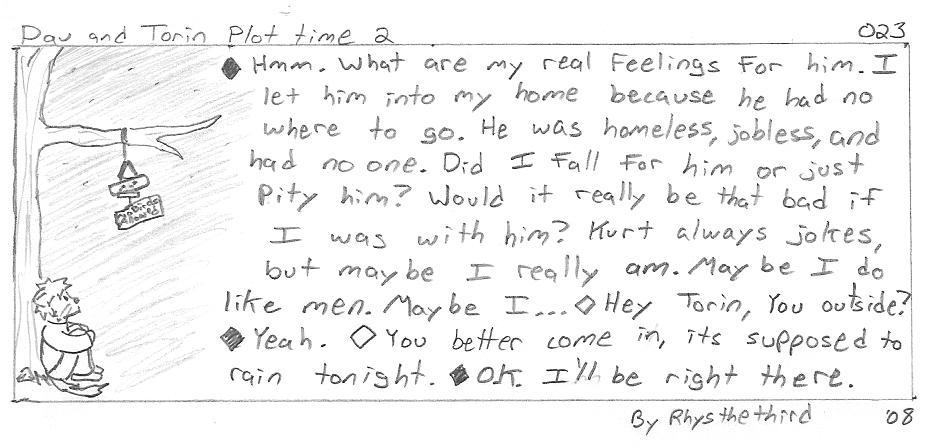 Dav and Torin Plot time 2 023
◆ Hmm. What are my real Feelings For him. I
let him into my home because he had no
where to go. He was homeless, jobless, and
had no one. Did I Fall For him or just
Pity him? Would it really be that bad if
I was with him? Kurt always jokes,
but maybe I really am. Maybe I do
like men. Maybe I... ◇ Hey Torin, You outside?
◆ Yeah. ◇ You better come in, its supposed to
rain tonight. ◆ O.K. I'll be right there.
Birds
Allowed
By Rhysthethird '08